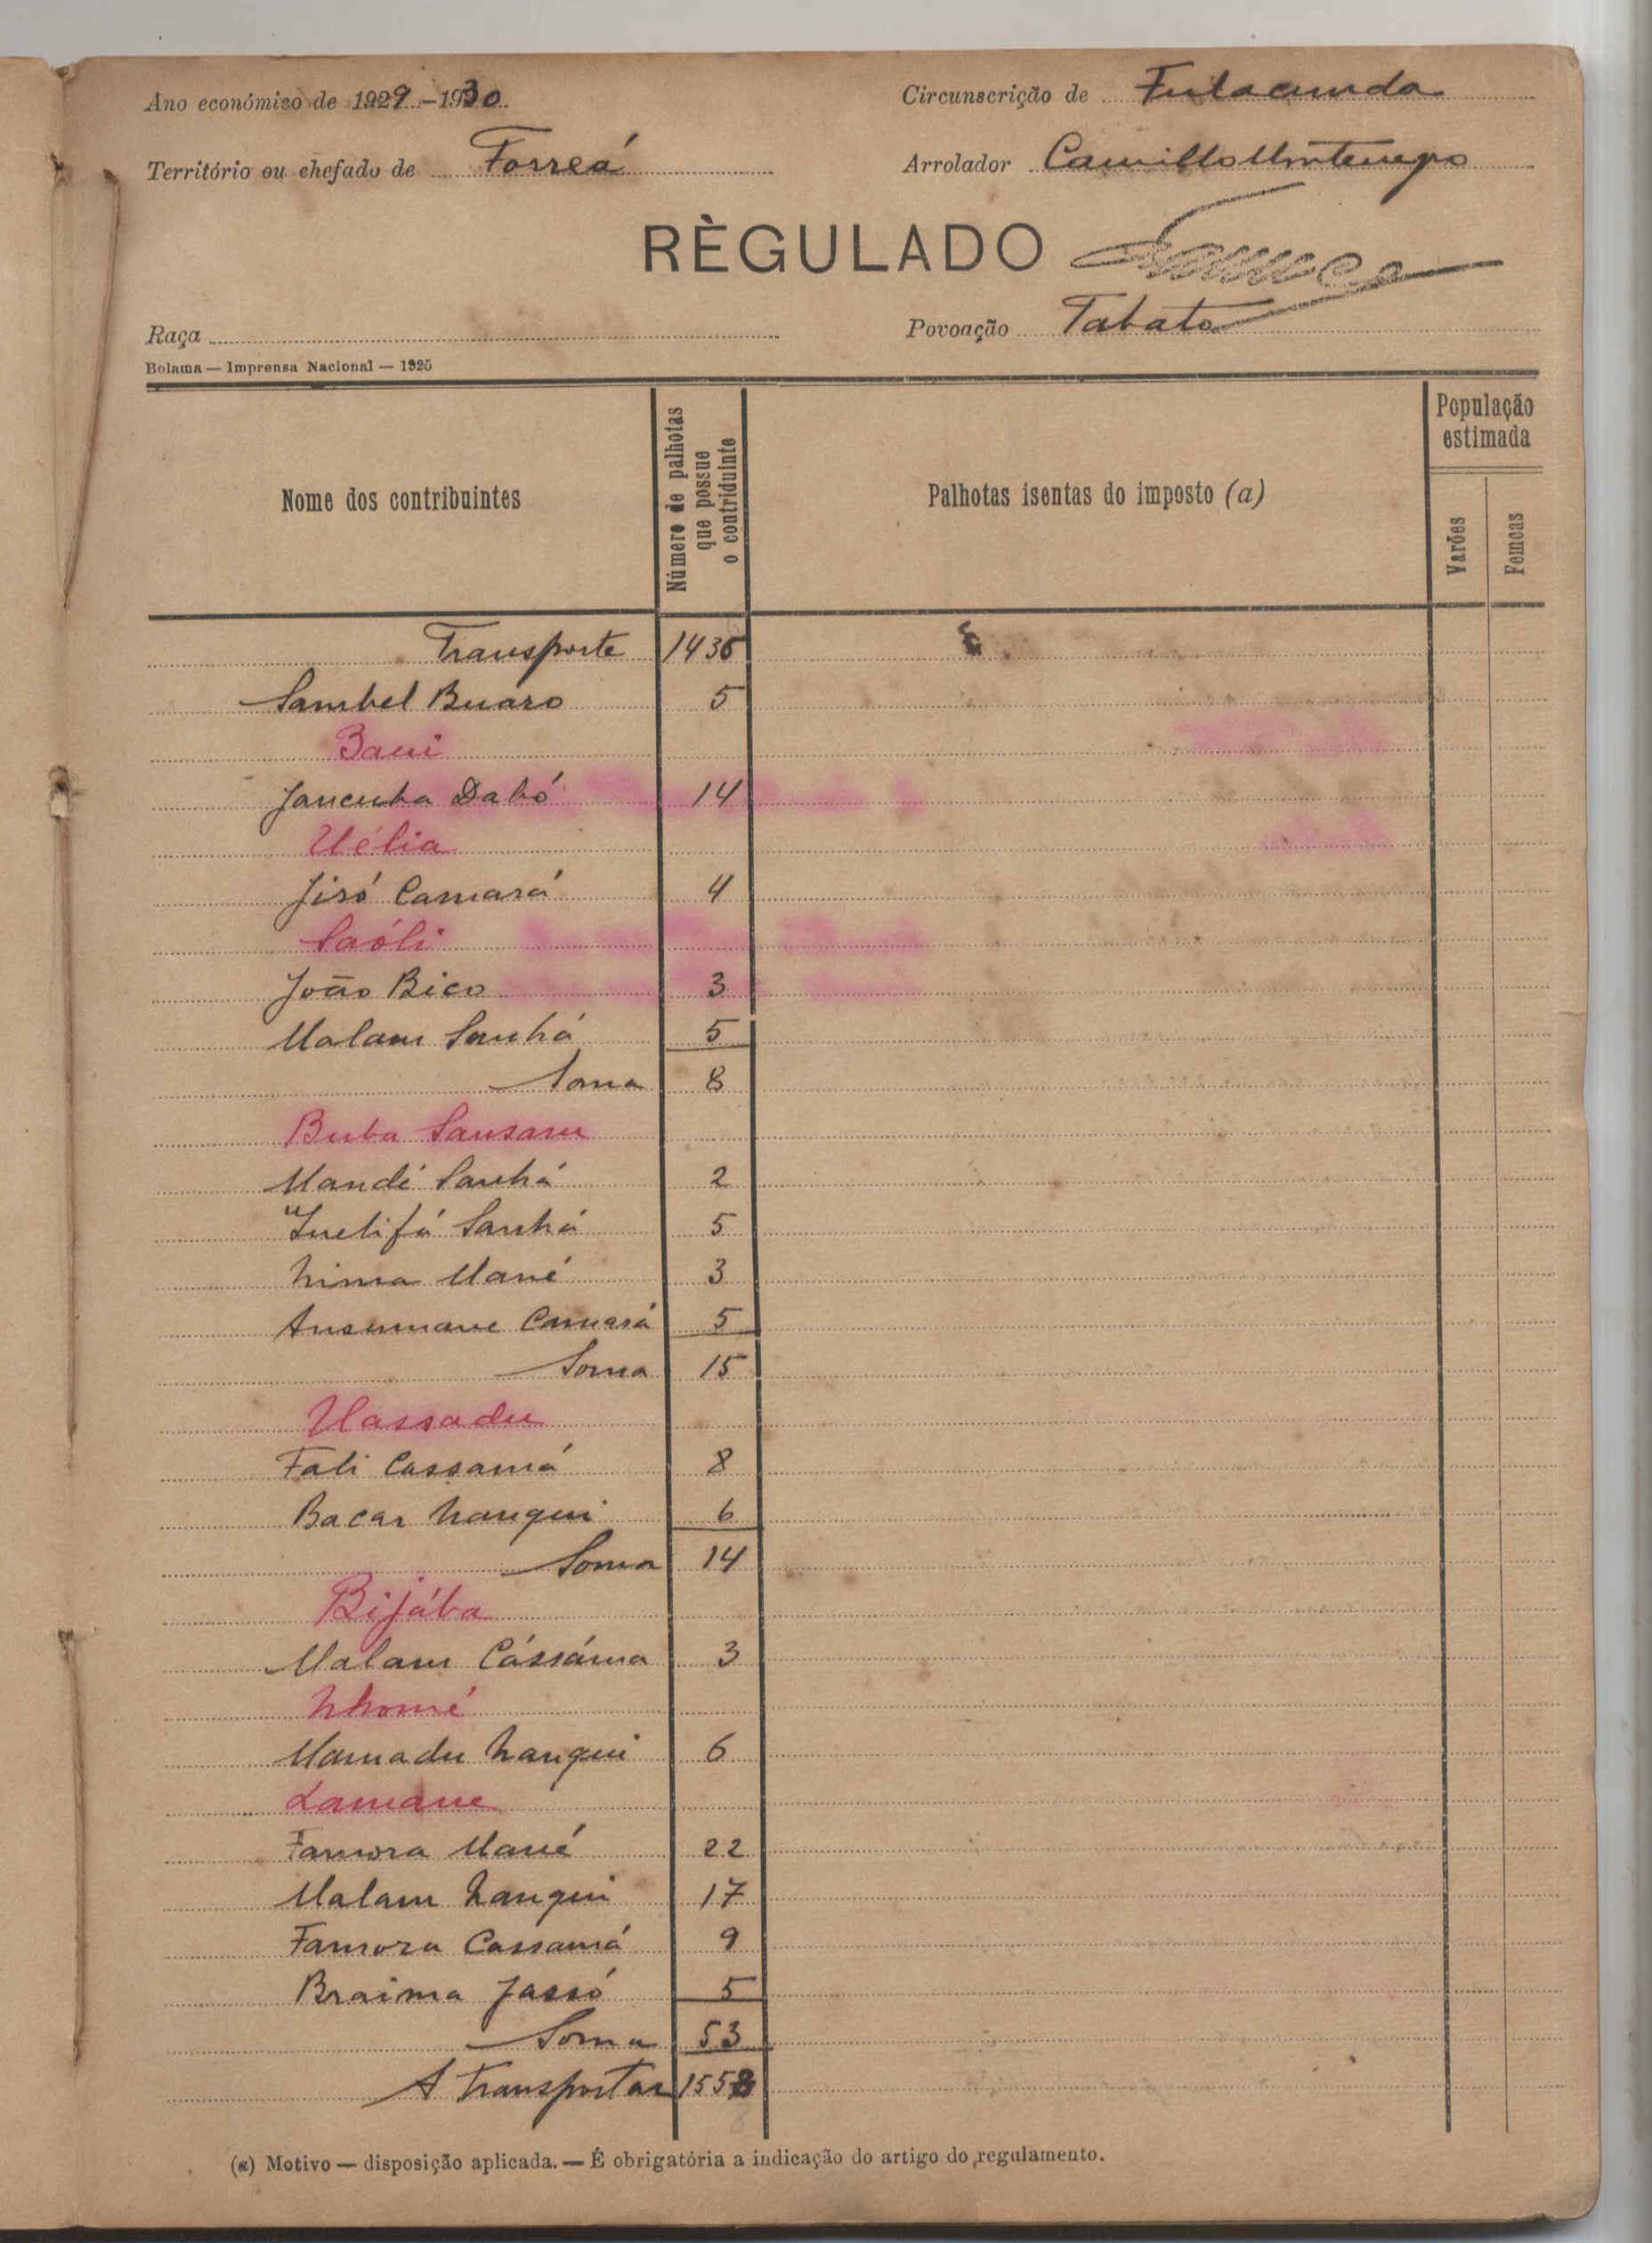 Ano económico de 1929-1930
Circunscrição de Fulacunda
Território ou chefado de Forreá
Arrolador Camillo Montenegro
RÈGULADO
Raça
Povoação Tabato
Bolama — Imprensa Nacional — 1925
Nome dos contribuintes
Número de palhotas que possue o contriduinte
Palhotas isentas do imposto (a)
População estimada
Varões
Femeas
Transporte 1436
Sambel Buaro 5
Bani
Jancuba Dabó 14
Uélia
Jisó Camará 4
Saóli
João Bico 3
Malam Sanhá 5
Soma 8
Buba Sansam
Mandé Sanhá 2
Sanhá 5
Nima Mané 3
Ansumane Camará 5
Soma 15
Uassadu
Fali Cassamá 8
Bacar Nanqui 6
Soma 14
Bijába
Malam Cássáma 3
Nhomé
Mamadu Nanqui 6
Lamane
Famora Mané 22
Malam Nanqui 17
Famora Cassamá 9
Braima Jassó 5
Soma 53
A transportar 1558
(a) Motivo — disposição aplicada. — É obrigatória a indicação do artigo do regulamento.